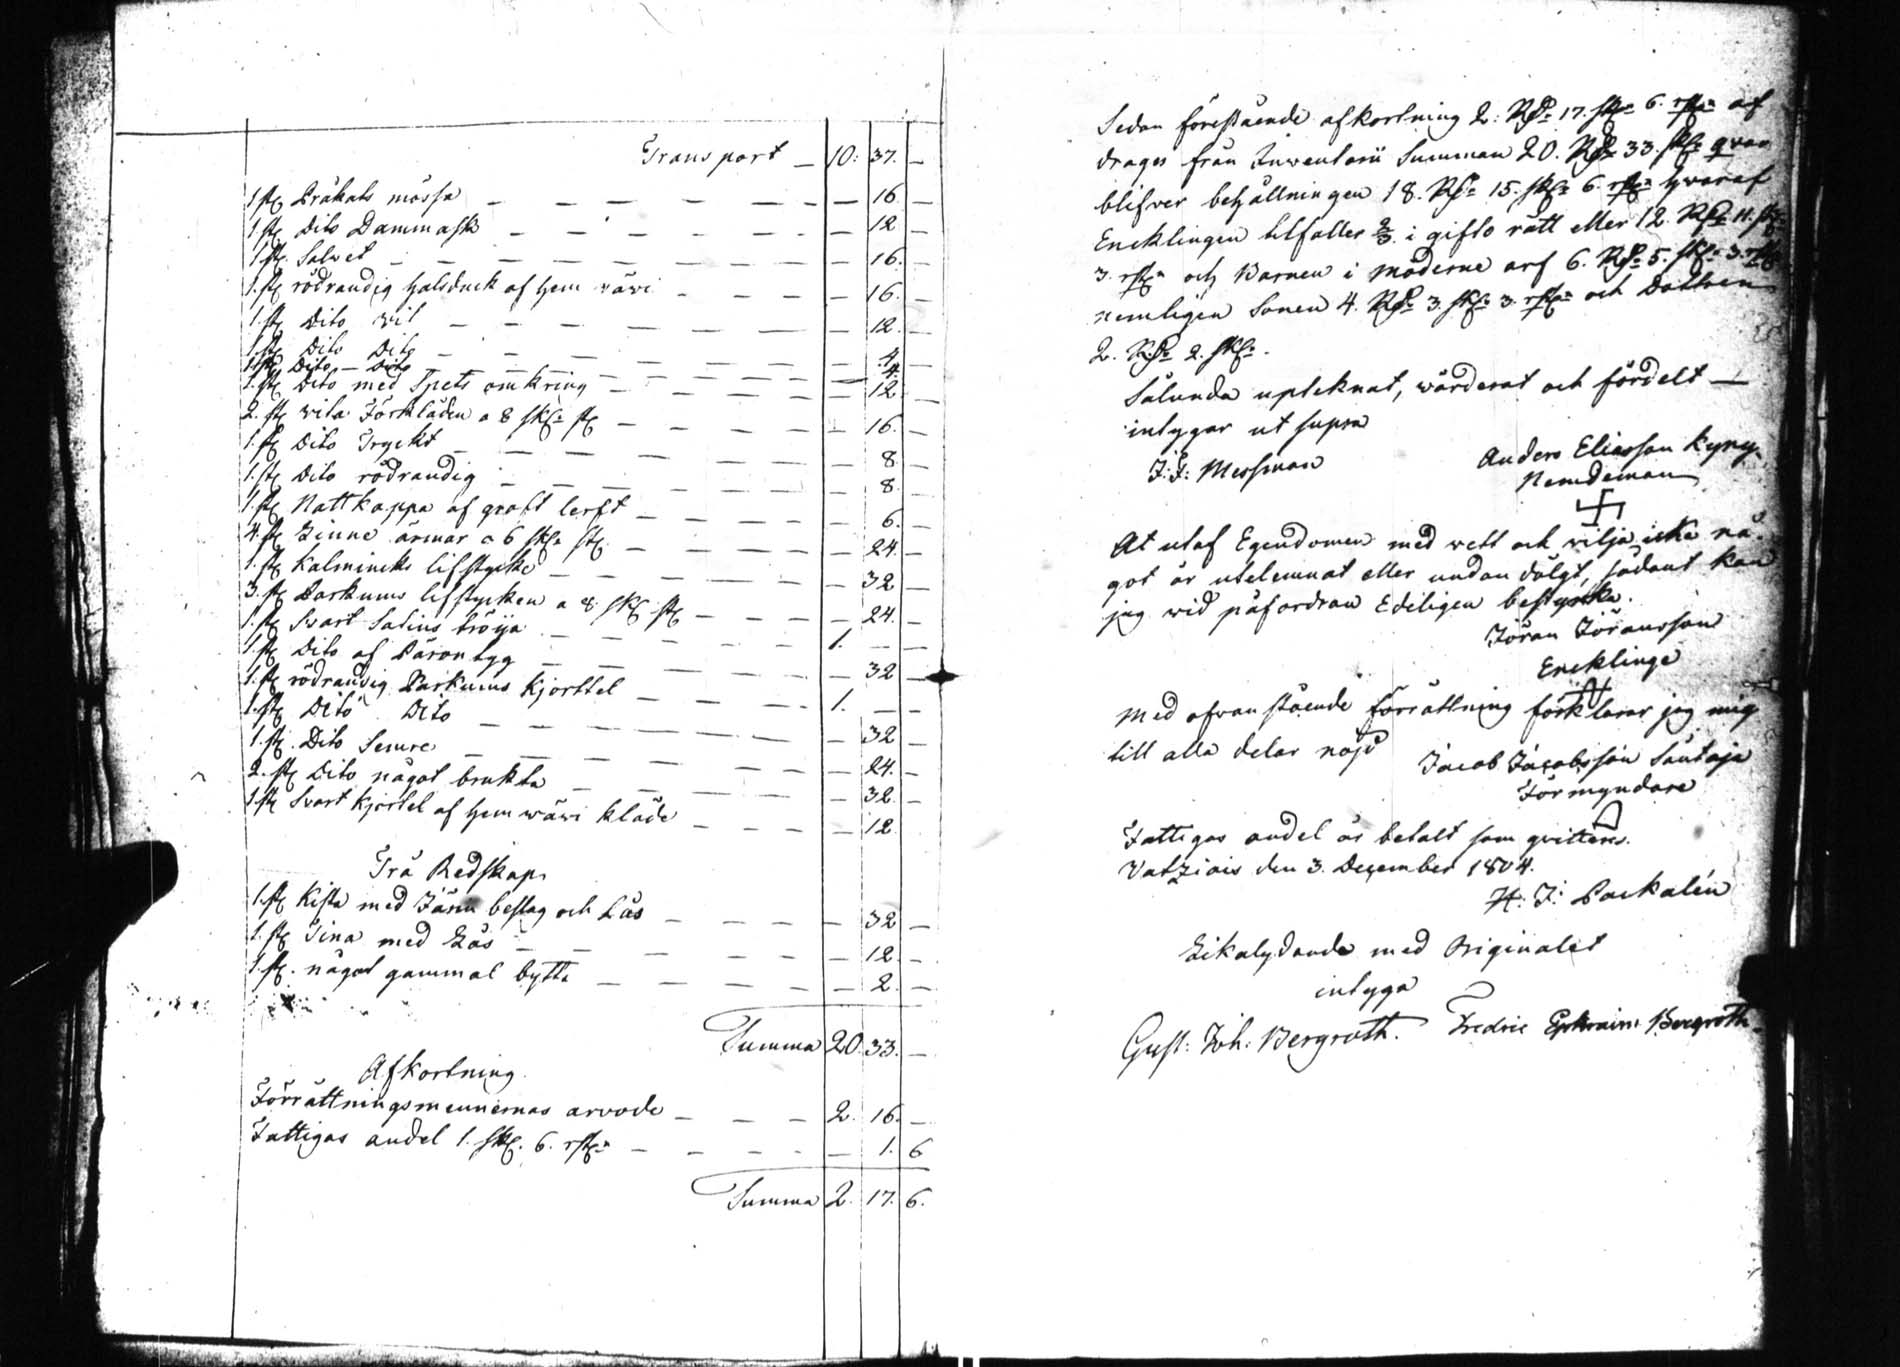 Transport — 10: 37. —
1 st. Bråkats mössa — 16. —
1. st. Dito Dammask — 12 —
1 st. Salvet — 16. —
1. st. rödrandig halsduck af hem vävi — 16. —
1. st. Dito vit — 12. —
1. st. Dito Dito — 4. —
1. st. Dito — Dito — 4. —
1. st. Dito med Spets omkring — 12 —
2. st. vita Förkläden a 8 sk. st. — 16. —
1. st. Dito Tryckt — 8. —
1. st. Dito rödrandig — 8. —
1. st. Nattkappa af groft lerft — 6. —
4. st. Linne ärmar a 6 sk. st. — 24. —
1. st. Kalmincks lifstycke — 32 —
3. st. Barkuns lifstycken a 8. sk. st. — 24. —
1. st. Svart Satins tröija — 1. — —
1. st. Dito af Päron tyg — 32 —
1. st. rödrandig Barkuns Kjorttel — 1. — —
1. st. Dito Dito — 32 —
1. st. Dito Semre — 24. —
2. st. Dito något brukta — 32. —
1. st. Svart Kjortel af hem wävi kläde — 12.
Trä Redskap
1. st. Kista med Järn beslag och Lås — 32 —
1. st. Tina med Lås — 12 —
1. st. något gammal bytta — 2. —
Summa 20. 33. —
Afkortning
Förrättningsmennernas arvode — 2. 16. —
Fattigas andel 1. sk. 6. rst. — 1. 6
Summa 2. 17. 6.
Sedan förestående afkortning 2: Rd. 17. sk. 6. rst. af
drages från Inventarii Summan 20. Rd. 33. sk. qvar
blifver behållningen 18. Rd. 15. sk. 6. rst. hvaraf
Encklingen tilfaller 2/3 i gifto rätt eller 12. Rd. 11. sk.
3. rst. och Barnen i möderne arf 6. Rd. 5. sk. 3. rst.
nemligen Sonen 4. Rd. 3. sk. 3. rst. och Dottren
2. Rd. 2. sk.
Sålunda upteknat, wärderat och fördelt —
intygar ut supra
J: J: Messman Anders Eliasson Kyny.
Nemdeman
At utaf Egendomen med vett och vilja icke nå-
got är utelemnat eller undan dölgt, sådant kan
jag wid påfordran Edeligen bestyrka.
Jöran Jöransson
Encklinge
Med ofvanstående förrättning förklarar jag mig
till alla delar nöjd Jacob Jacobsson Säntaja
Förmyndare
Fattigas andel är betalt som qvitteras.
den 3. December 1804.
H: J: Packalén
Likalydande med Originalet
intyga
Gust: Joh: Bergroth. Fredric Ephraim Bergroth